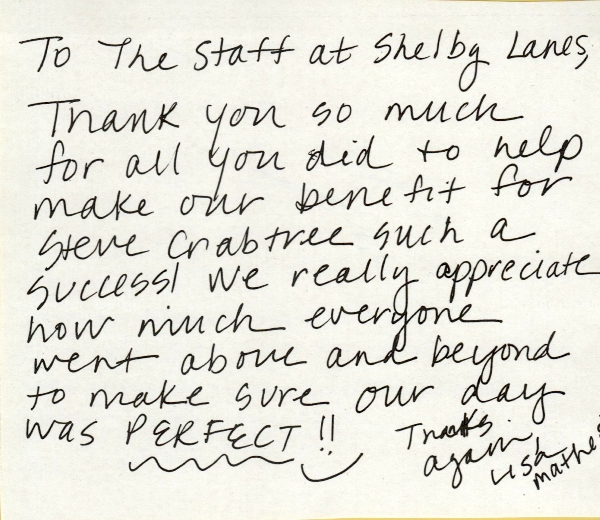 To The Staff at Shelby Lanes,
Thank you so much
for all you did to help
make our benefit for
Steve Crabtree such a
success! We really appreciate
how much everyone
went above and beyond
to make sure our day
was PERFECT!!
Thanks
again,
Lisa